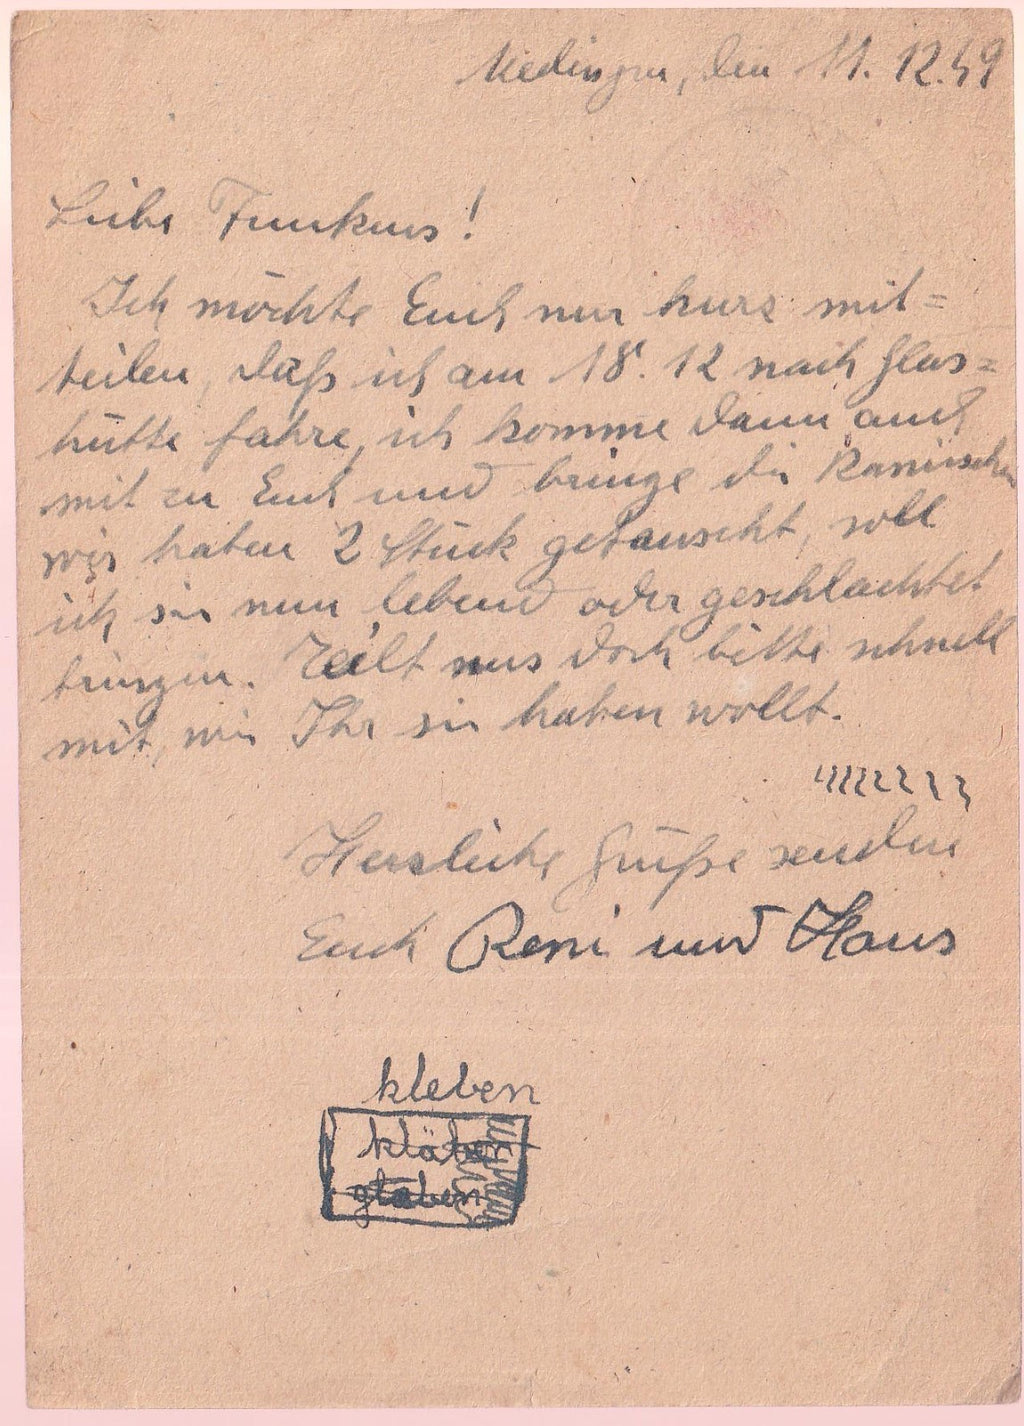 Medingen, den 11.12.49
Liebe Funkens!
Ich möchte Euch nur kurz mit=
teilen, daß ich am 18.12 nach Glas=
hütte fahre, ich komme dann auch
mit zu Euch und bringe die Kaninchen
wir haben 2 Stück getauscht, soll
ich sie nun lebend oder geschlachtet
bringen. Teilt uns doch bitte schnell
mit, wie Ihr sie haben wollt.
Herzliche Grüße senden
Euch Reni und Hans
kleben
kläben
glaben